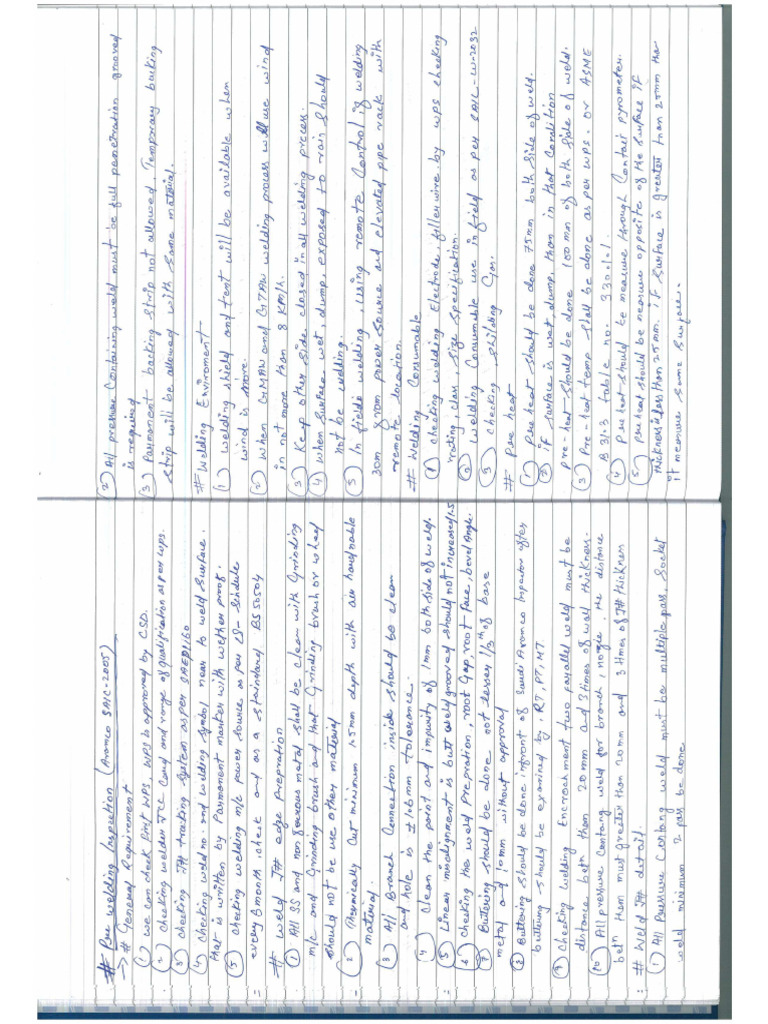 # Pre welding Inspection (Aramco SAIC-2005)
→ # General Requirement
(1) we can check first WPS, WPS is approved by CSD.
(2) checking welder JCC Card and range of qualification as per wps.
(3) checking J# tracking system as per SAEP1160
(4) checking weld no. and welding symbol near to weld surface.
that is written by Parmonent marker with wether proof.
(5) checking welding m/c power source as per calibration schedule
every 6 month, check and as a standard BS 50504
# weld J# edge prepration
(1) All SS and non ferrous metal shall be clean with Grinding
m/c and Grinding brush and that Grinding brush or wheel
should not be use other material
(2) Thermically cut minimum 1.5mm depth with air hardnable
material.
(3) All Branch Connection inside should be clean
and hole is ±1.6mm tolerance.
(4) clean the paint and impurity of 1mm both side of weld.
(5) Linear misalignment is but weld grooved should not increased 1.5
(6) checking the weld prepration, root Gap, root face, bevel Angle.
(7) Buttering should be done not lesser 1/3th of base
metal and 10mm without approval
(8) Buttering should be done infront of Saudi Aramco Inspector after
buttering should be examined by, RT, PT, MT
(9) checking welding Encroachment two parallel weld must be
distance beth than 20mm and 3 times of wall thickness.
(10) All pressure Containg weld for branch, nozzle, the distance
beth them must greater than 20mm and 3 times of J# thickness
# Weld J# detail.
(1) All Pressure Containg weld must be multiple pass, Socket
weld minimum 2 pass be done
(2) All pressure Containing weld must be full penetration grooved
is required
(3) Parmonent backing strip not allowed, Temporary backing
strip will be allowed with same material.
# Welding Enviroment-
(1) welding shield and tent will be available when
wind is more.
(2) when GMAW and GTAW welding process will use wind
in not more than 8 KM/h.
(3) Keep other side closed in all welding process.
(4) when surface wet, dump, exposed to rain should
not be welding.
(5) In field welding, using remote Control if welding
30m from power source and elevated pipe rack with
remote location.
# Welding Consumable
(1) checking welding Electrode, filler wire by wps checking
rating, class, size specification.
(2) welding Consumable use in field as per SAIC-W-2032
(3) checking shilding Gas.
# Pre heat
(1) Pre heat should be done 75mm both side of weld.
(2) if surface is wet, dump, than in that condition
pre-heat should be done 100mm of both side of weld.
(3) Pre-heat temp shall be done as per WPS. or ASME
B 31.3 table no. 330.1.1.
(4) pre heat should be measure through Contact pyrometer.
(5) pre heat should be measure opposite of the surface if
thickness is less than 25mm. if surface is greater than 25mm than
it measure same surface.